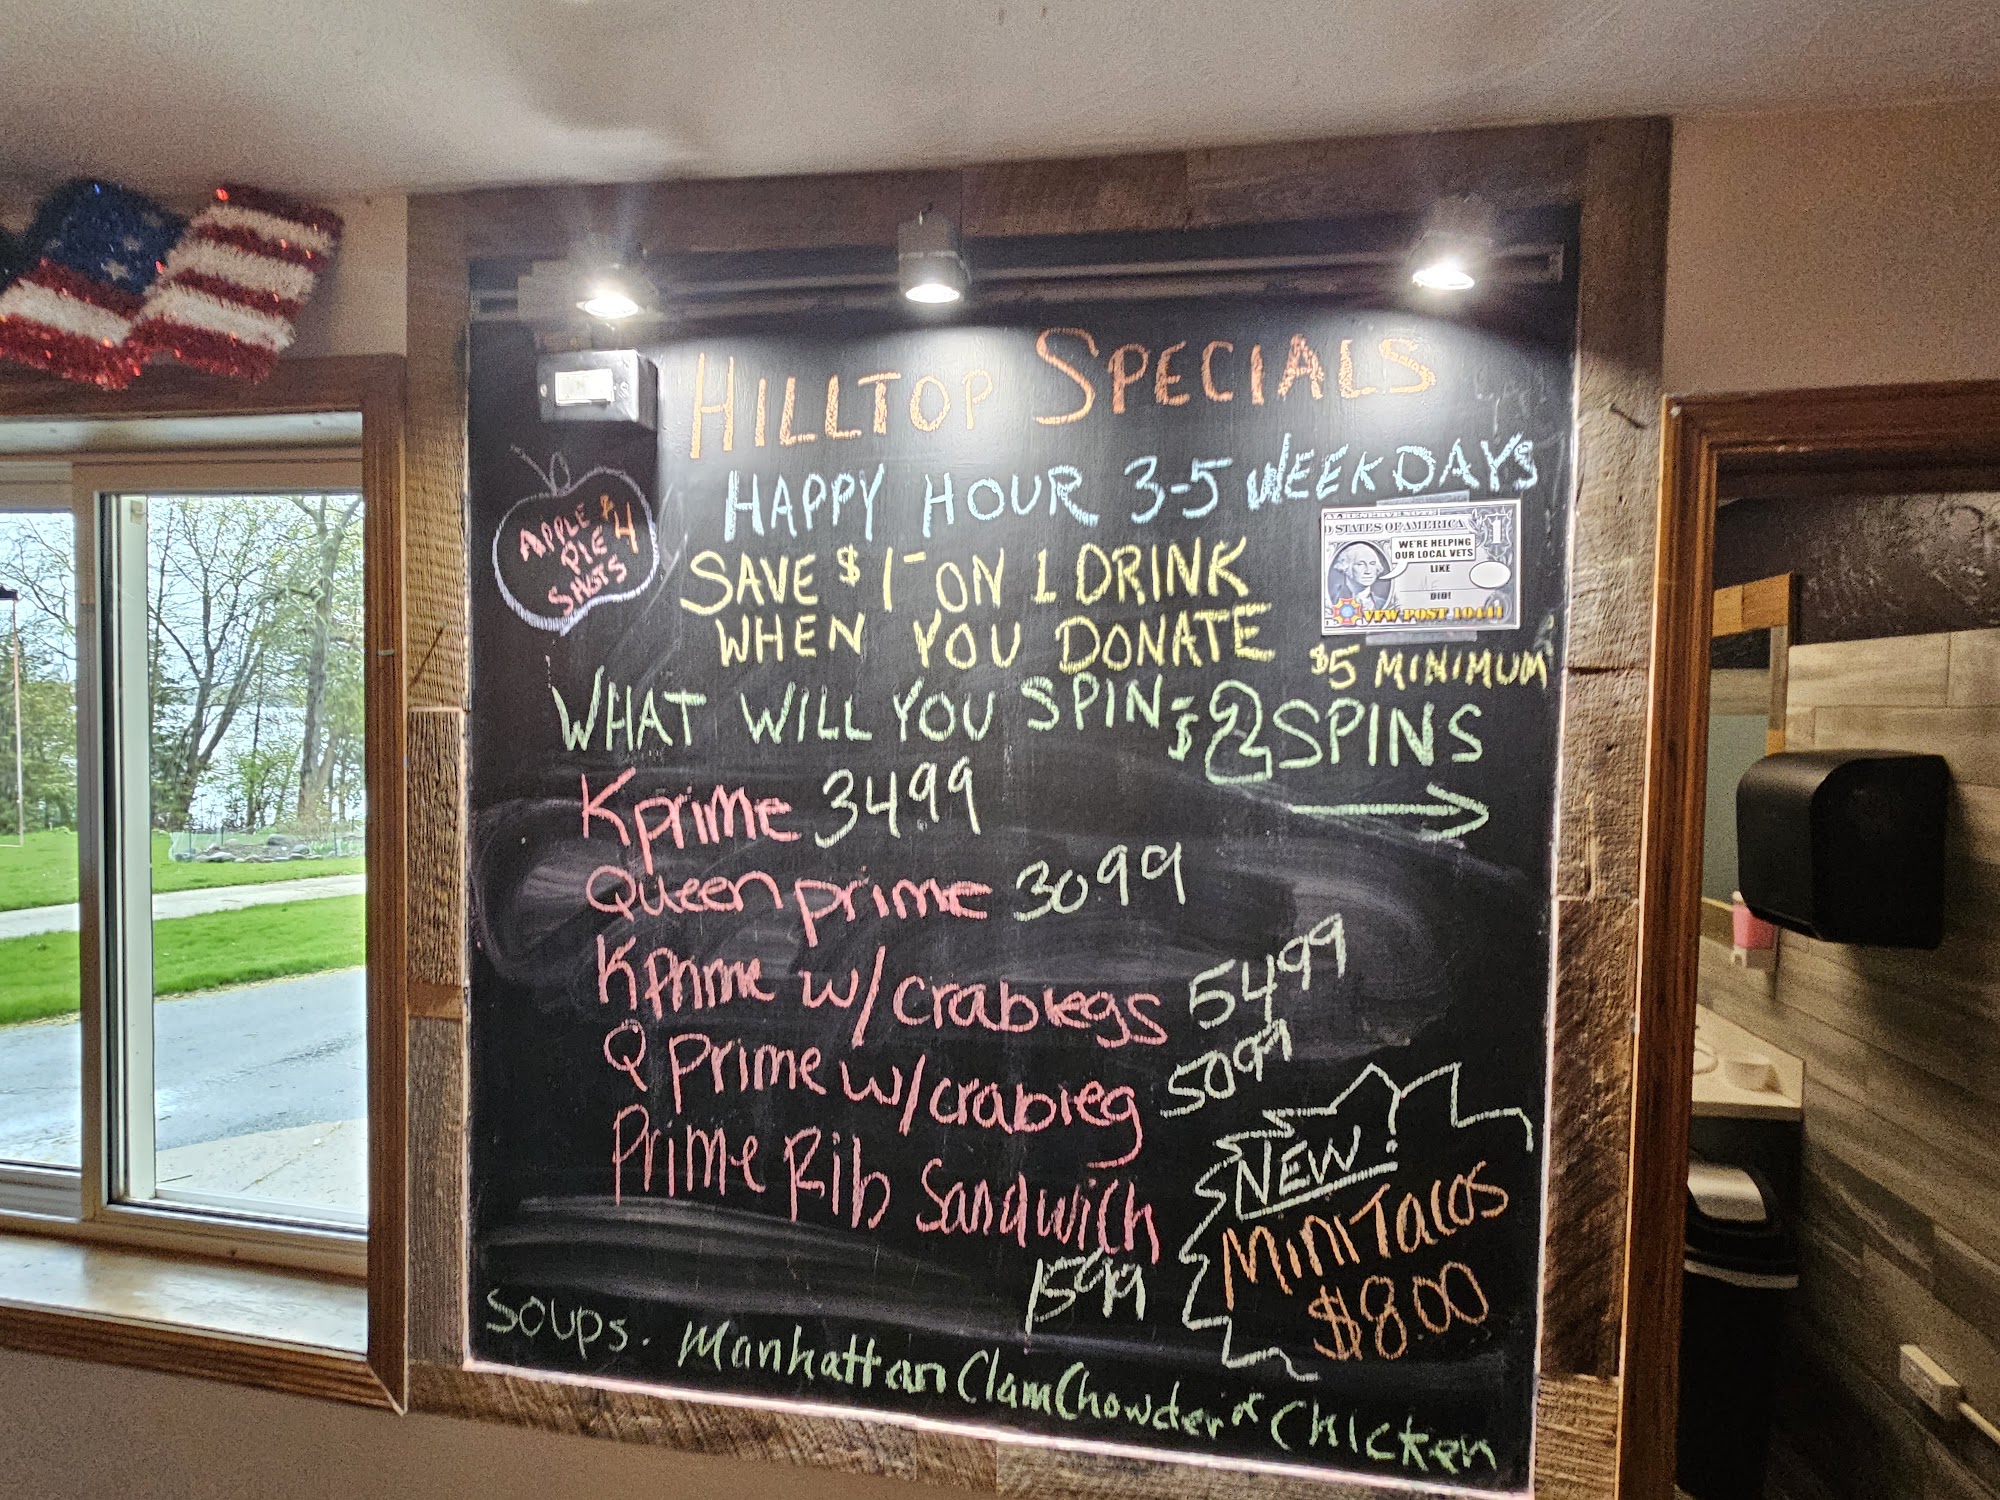 HILLTOP SPECIALS
HAPPY HOUR 3-5 WEEKDAYS
APPLE $4
PIE
SHOTS
SAVE $1- ON 1 DRINK
WHEN YOU DONATE
$5 MINIMUM
AL RESERVE NOTE
D STATES OF AMERICA
1
WE'RE HELPING
OUR LOCAL VETS
LIKE
ME
DID!
VFW POST 10441
WHAT WILL YOU SPIN - $2 SPINS
K prime 3499
Queen prime 3099
K Prime w/ crablegs 5499
Q Prime w/ crableg 5099
Prime Rib Sandwich
1599
NEW!
MINI TACOS
$8.00
Soups. Manhattan Clam Chowder or Chicken